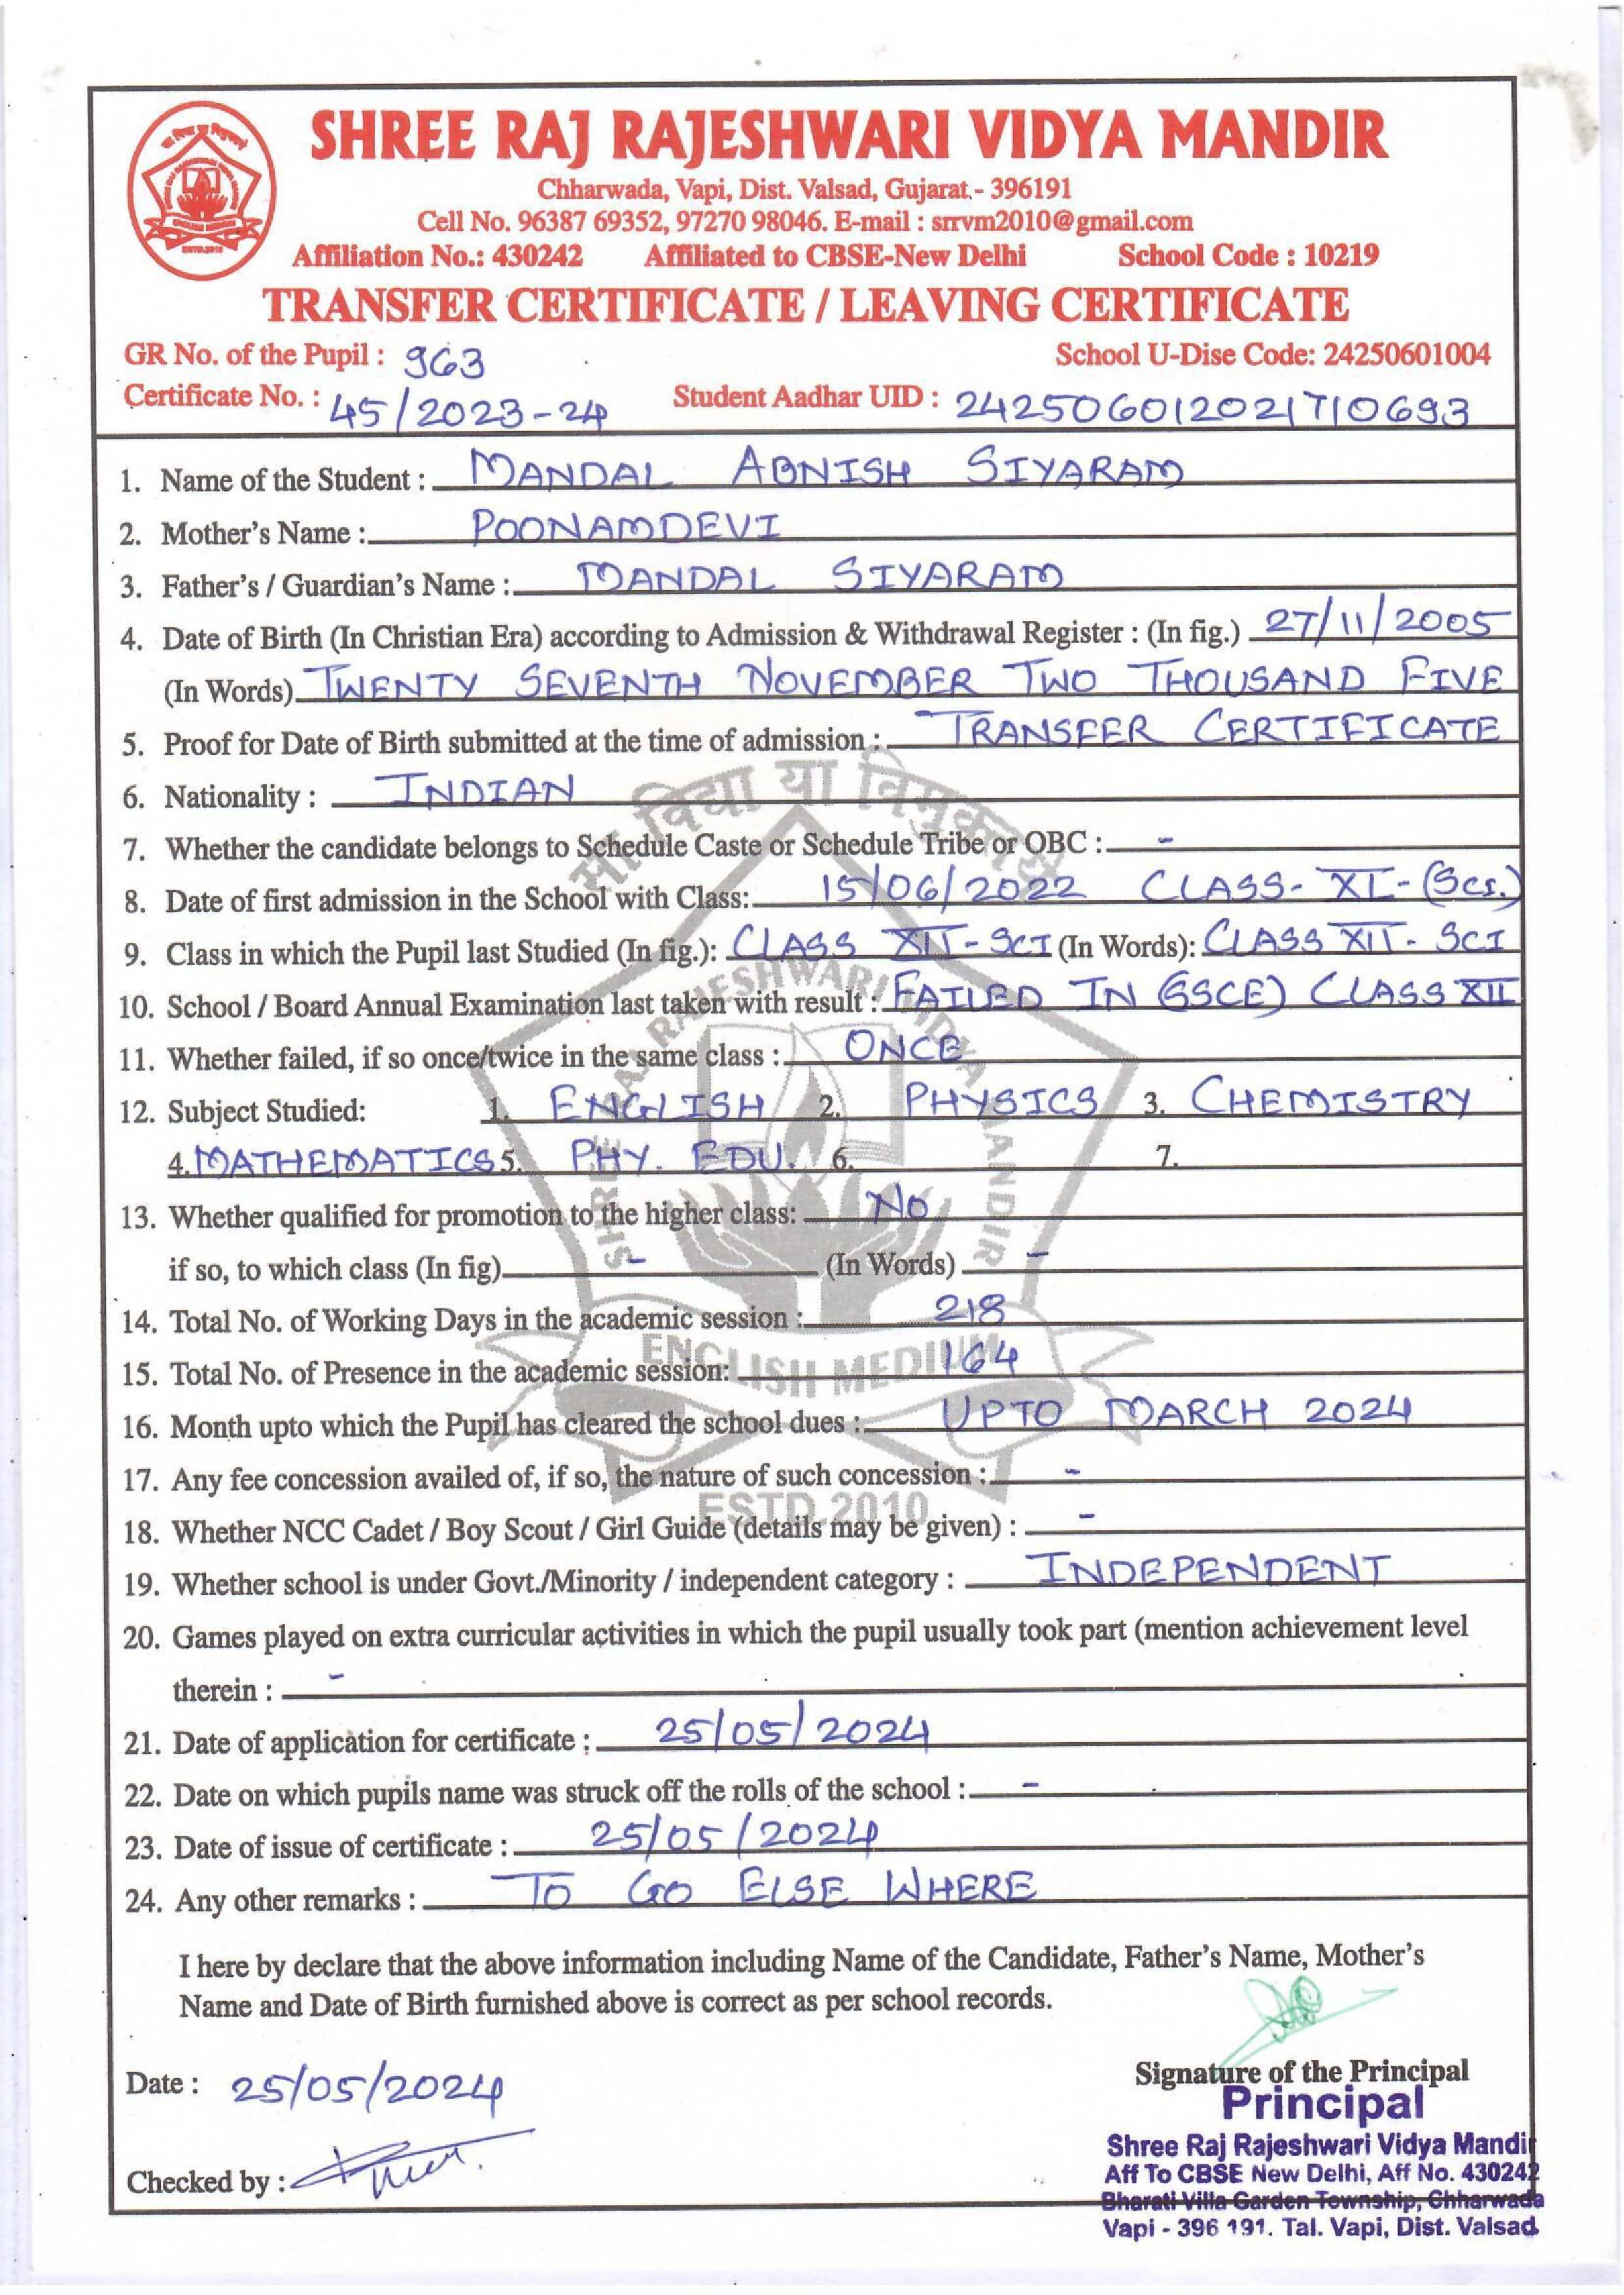 SHREE RAJ RAJESHWARI VIDYA MANDIR
Chharwada, Vapi, Dist. Valsad, Gujarat.- 396191
Cell No. 96387 69352, 97270 98046. E-mail : srrvm2010@gmail.com
Affiliation No.: 430242 Affiliated to CBSE-New Delhi School Code : 10219
TRANSFER CERTIFICATE / LEAVING CERTIFICATE
GR No. of the Pupil : 963 School U-Dise Code: 24250601004
Certificate No. : 45/2023-24 Student Aadhar UID : 242506012021710693
1. Name of the Student : MANDAL ABNISH SIYARAM
2. Mother's Name : POONAMDEVI
3. Father's / Guardian's Name : MANDAL SIYARAM
4. Date of Birth (In Christian Era) according to Admission & Withdrawal Register : (In fig.) 27/11/2005
(In Words) TWENTY SEVENTH NOVEMBER TWO THOUSAND FIVE
5. Proof for Date of Birth submitted at the time of admission : TRANSFER CERTIFICATE
6. Nationality : INDIAN
सा विद्या या विमुक्तये
7. Whether the candidate belongs to Schedule Caste or Schedule Tribe or OBC : -
8. Date of first admission in the School with Class: 15/06/2022 CLASS- XI- (Sci.)
9. Class in which the Pupil last Studied (In fig.): CLASS XII-SCI (In Words): CLASS XII- SCI
10. School / Board Annual Examination last taken with result : FAILED IN (SSCE) CLASS XII
11. Whether failed, if so once/twice in the same class : ONCE
SHREE RAJ RAJESHWARI VIDYA MANDIR
12. Subject Studied: 1. ENGLISH 2. PHYSICS 3. CHEMISTRY
4. MATHEMATICS 5. PHY. EDU. 6. 7.
13. Whether qualified for promotion to the higher class: NO
if so, to which class (In fig) - (In Words) -
14. Total No. of Working Days in the academic session : 218
ENGLISH MEDIUM
15. Total No. of Presence in the academic session: 164
16. Month upto which the Pupil has cleared the school dues : UPTO MARCH 2024
17. Any fee concession availed of, if so, the nature of such concession : -
ESTD.2010
18. Whether NCC Cadet / Boy Scout / Girl Guide (details may be given) : -
19. Whether school is under Govt./Minority / independent category : INDEPENDENT
20. Games played on extra curricular activities in which the pupil usually took part (mention achievement level
therein : -
21. Date of application for certificate : 25/05/2024
22. Date on which pupils name was struck off the rolls of the school : -
23. Date of issue of certificate : 25/05/2024
24. Any other remarks : TO GO ELSE WHERE
I here by declare that the above information including Name of the Candidate, Father's Name, Mother's
Name and Date of Birth furnished above is correct as per school records.
Date : 25/05/2024
Signature of the Principal
Principal
Shree Raj Rajeshwari Vidya Mandir
Aff To CBSE New Delhi, Aff No. 430242
Checked by :
Bharati Villa Garden Township, Chharwada
Vapi - 396 191. Tal. Vapi, Dist. Valsad